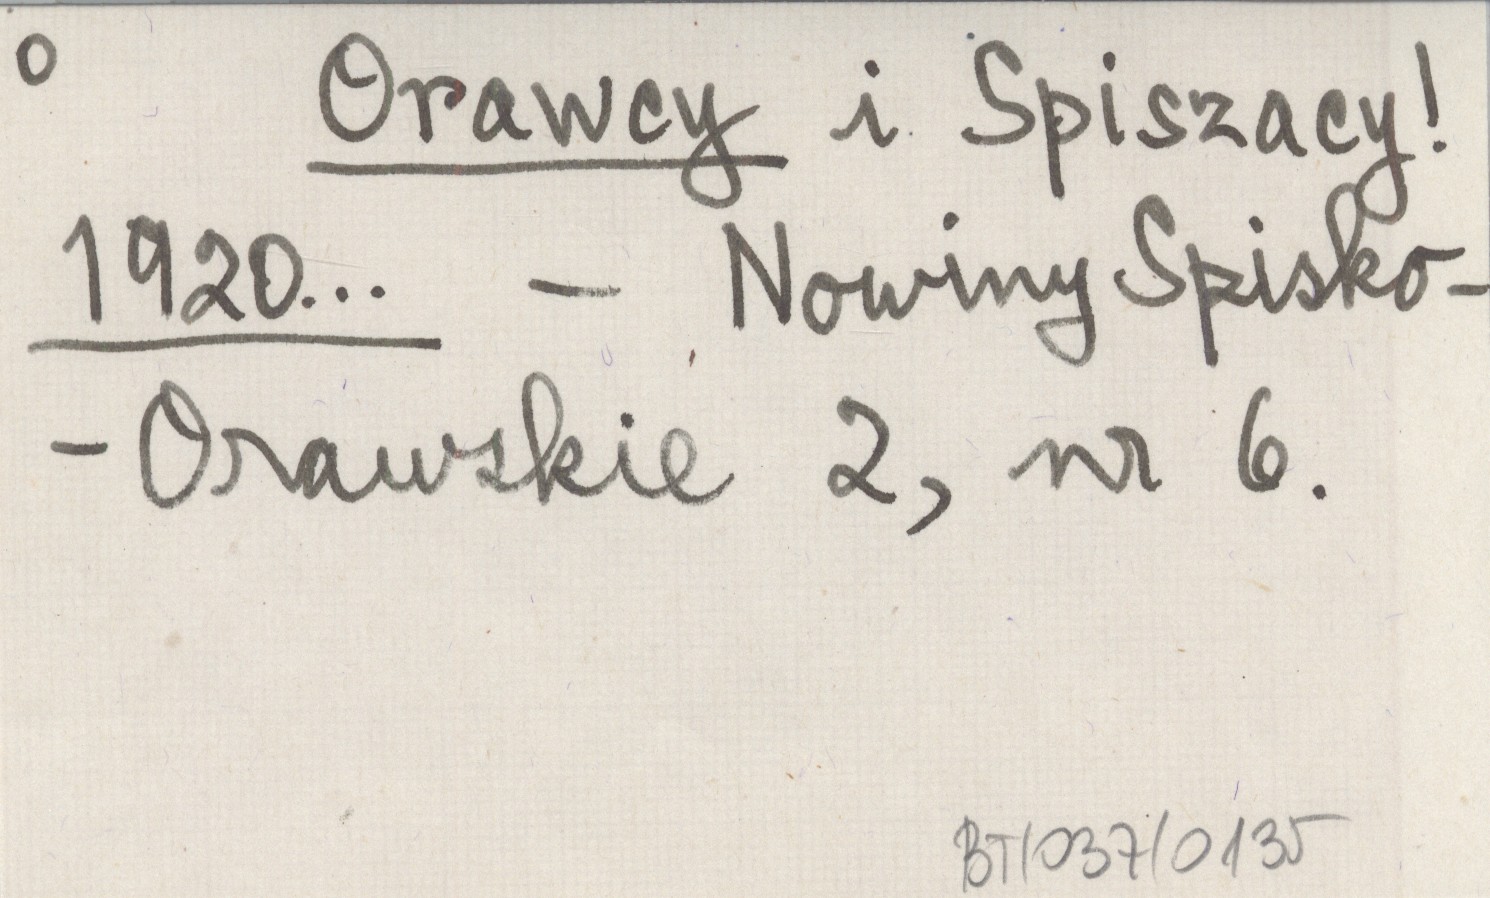 o Orawcy i Spiszacy!
1920... - Nowiny Spisko-
- Orawskie 2, nr 6.
BT/037/0135